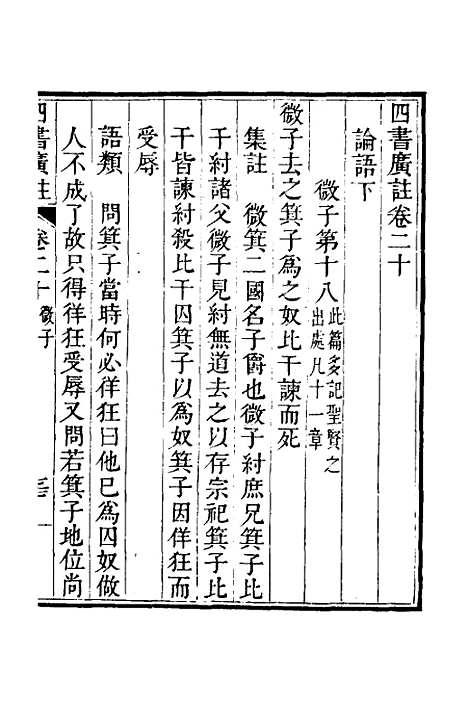 四書廣註卷二十
論語下
微子第十八此篇多記聖賢之
出處凡十一章
微子去之箕子爲之奴比干諫而死
集註　微箕二國名子爵也微子紂庶兄箕子比
干紂諸父微子見紂無道去之以存宗祀箕子比
干皆諫紂殺比干囚箕子以爲奴箕子因佯狂而
受辱
語類　問箕子當時何必佯狂曰他已爲囚奴做
人不成了故只得佯狂受辱又問若箕子地位尚
四書廣註　卷二十　微子